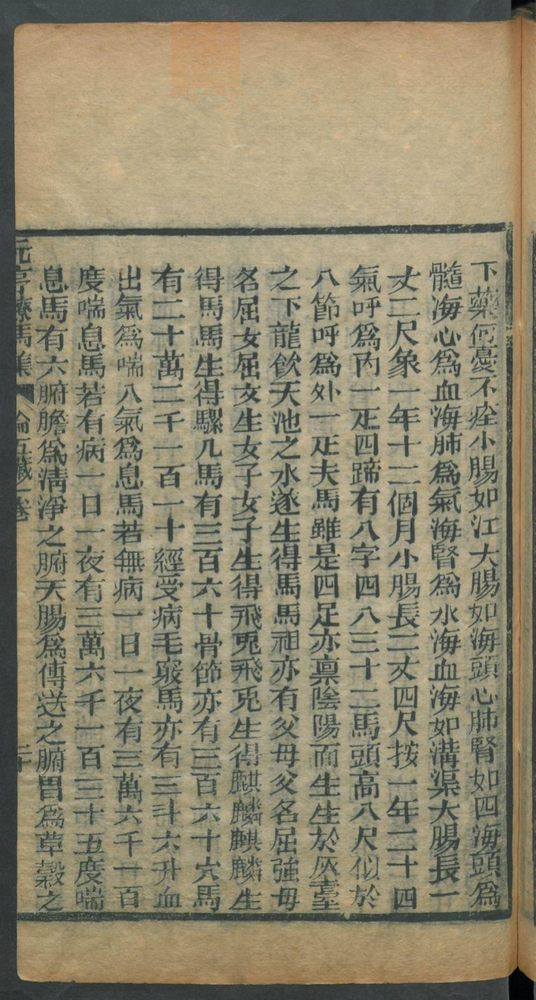 下藥何憂不痊小腸如江大腸如海頭心肺腎如四海頭爲
髓海心爲血海肺爲氣海腎爲水海血海如溝渠大腸長一
丈二尺象一年十二個月小腸長二丈四尺按一年二十四
氣呼爲丙一疋四蹄有八字四八三十二馬頭高八尺似於
八節呼爲外一疋夫馬雖是四足亦禀陰陽而生生於灰臺
之下龍飲天池之水遂生得馬馬祖亦有父母父名屈強母
名屈女屈女生女子女子生得飛兎飛兎生得麒麟麒麟生
得馬馬生得騾凡馬有三百六十骨節亦有三百六十穴馬
有二十萬二千一百一十經受病毛竅馬亦有三斗六升血
出氣爲喘入氣爲息馬若無病一日一夜有三萬六千一百
度喘息馬若有病一日一夜有三萬六千一百三十五度喘
息馬有六腑膽爲清淨之腑大腸爲傳送之腑胃爲草穀之
元亨療馬集 論五臟 卷 二十